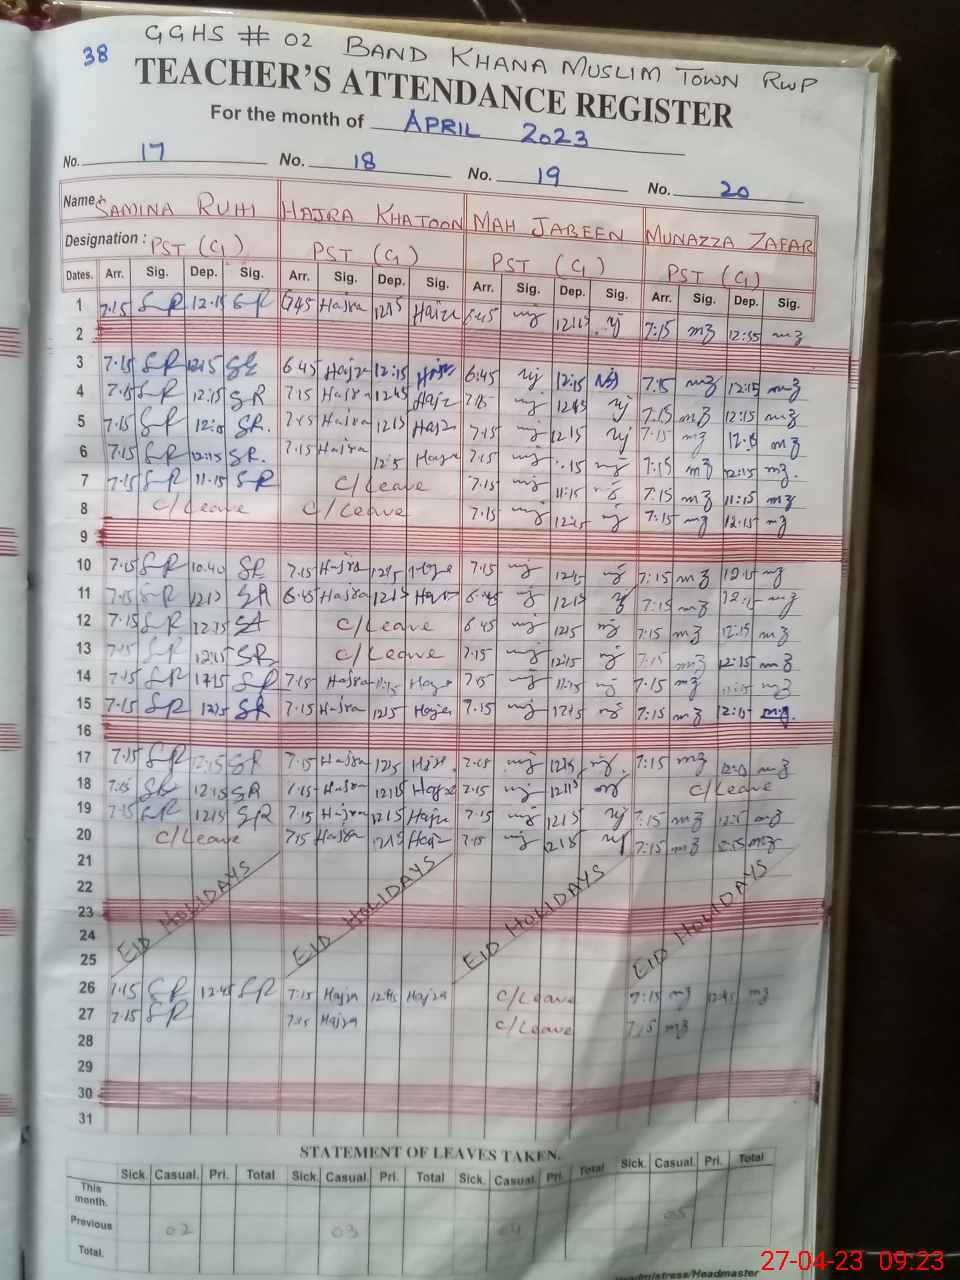 GGHS # 02 BAND KHANA MUSLIM TOWN RWP
38
TEACHER'S ATTENDANCE REGISTER
For the month of APRIL 2023
No. 17 No. 18 No. 19 No. 20
Name: SAMINA RUHI HAJRA KHATOON MAH JABEEN MUNAZZA ZAFAR
Designation: PST (G) PST (G) PST (G) PST (G)
Dates. Arr. Sig. Dep. Sig. Arr. Sig. Dep. Sig. Arr. Sig. Dep. Sig. Arr. Sig. Dep. Sig.
1 7.15 SR 12.15 SR 6.45 Hajra 12.15 6.45 mj 12.15 mj 7:15 mz 12:35 mz
2
3 7.15 SR 12.15 SR 6.45 Hajra 12:15 Hajra 6:45 mj 12:15 7:15 mz 12:15 mz
4 7.15 SR 12.15 SR 7.15 Hajra 12.45 Hajr mj 12.45 mj 7.15 mz 12:15 mz
5 7.15 SR SR. 7.15 Hajra 12.15 Hajra 7.15 mj 12.15 mj 7:15 mz mz
6 7.15 SR 12.15 SR. 7.15 Hajra Hajra 7.15 mj mj 7:15 mz 12:15 mz.
7 7.15 SR 11.15 SR C/Leave 7.15 mj 11:15 mj 7:15 mz 11:15 mz
8 C/Leave C/Leave 7.15 mj 12:15 mj 7:15 mz 12:15 mz
9
10 7.15 SR 10.40 SR 7.15 Hajra 12.15 7.15 mj 12.15 mj 7:15 mz 12.15 mz
11 7.15 SR 12.15 SR 6.45 Hajra 12.15 6.45 mj 12.15 7:15 mz 12:15 mz
12 7.15 SR 12.15 SR C/Leave 6.45 mj 12.15 mj 7:15 mz 12:15 mz
13 7.15 SR 12:15 SR C/Leave 7.15 mj 12:15 mj 7:15 mz 12:15 mz
14 7.15 SR SR 7.15 Hajra 11:15 7.15 mj 11:15 mj 7.15 mz 11:15 mz
15 7.15 SR 12.15 SR 7.15 Hajra 12.15 Hajra 7.15 mj 12.15 mj 7:15 mz 12:15 mz.
16
17 7.15 SR 12.15 SR 7.15 Hajra 12.15 7.15 mj 12.15 mj. 7:15 mz mz
18 7.15 SR 12.15 SR 7.15 Hajra 12.15 Hajra 7.15 mj 12.15 C/Leave
19 7.15 SR 12.15 SR 7.15 Hajra 12.15 Hajra 7.15 mj 12.15 mj 7:15 mz mz
20 C/Leave 7.15 Hajra 12.15 7.15 mj 12.15 mj 7:15 mz mz
21
22
23
24
25
EID HOLIDAYS EID HOLIDAYS EID HOLIDAYS EID HOLIDAYS
26 7.15 SR 12.45 SR 7:15 Hajra 12.45 Hajra C/Leave 7:15 mz 12.45 mz
27 7.15 SR 7.15 Hajra C/Leave 7.15 mz
28
29
30
31
STATEMENT OF LEAVES TAKEN.
Sick. Casual. Pri. Total Sick. Casual Pri. Total Sick. Casual. Pri. Total Sick. Casual. Pri. Total
This month.
Previous 02 03 04 05
Total.
Headmistress/Headmaster
27-04-23 09:23